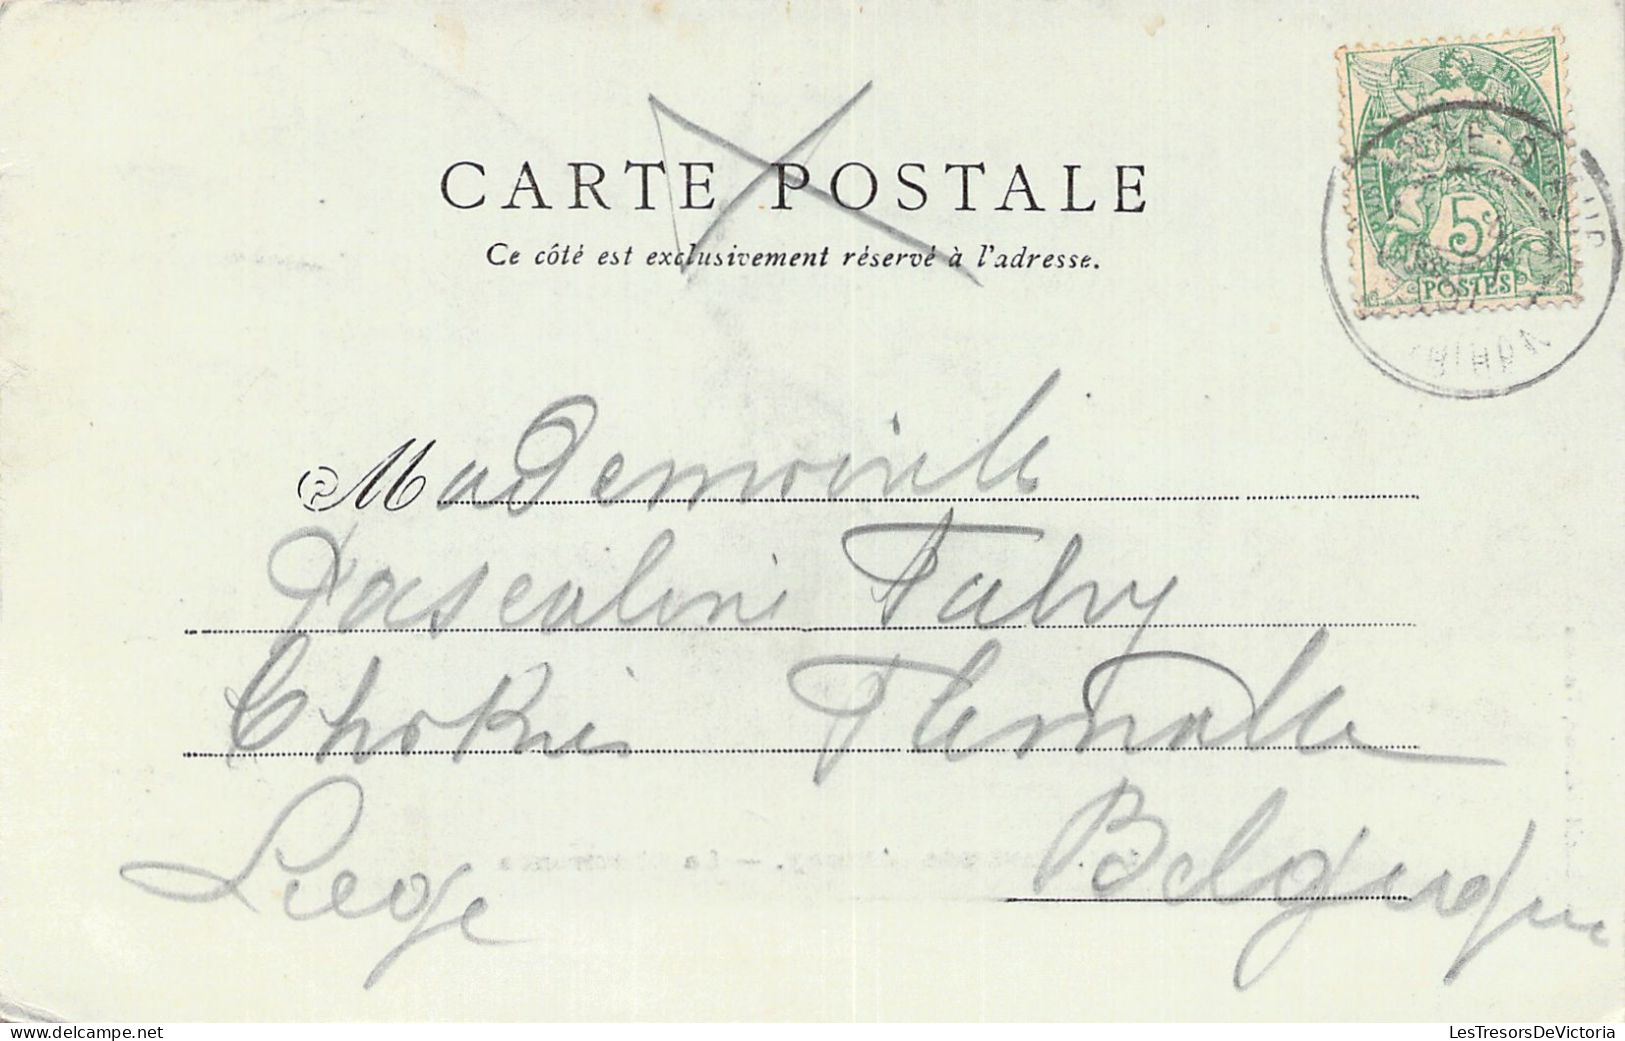 CARTE POSTALE
Ce côté est exclusivement réservé à l'adresse.
5c
POSTES
Mademoiselle
Pascaline Fabry
Chokier Flemalle
Liege Belgique
LesTresorsDeVictoria